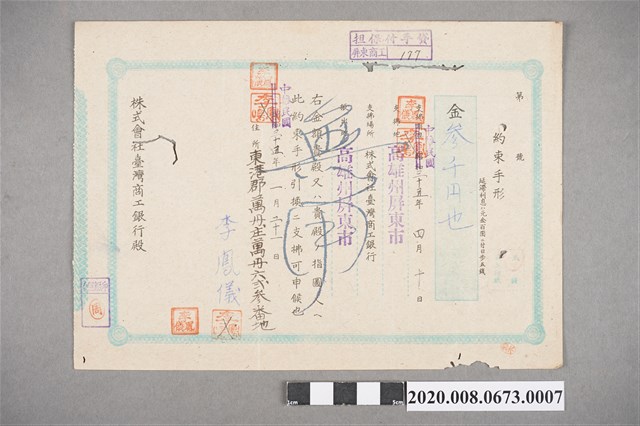 擔保付手貸
屏東商工
177
第 號
約束手形
金參千円也
中華民國三十五年四月十日
高雄州屏東市
支拂場所 株式會社臺灣商工銀行
高雄州屏東市
右金額貴殿又ハ貴殿ノ指圖人ヘ
此約束手形引換ニ支拂可申候也
中華民國三十五年一月二十一日
住所 東港郡萬丹庄萬丹六弐參番地
李鳳儀
株式會社臺灣商工銀行殿
2020.008.0673.0007